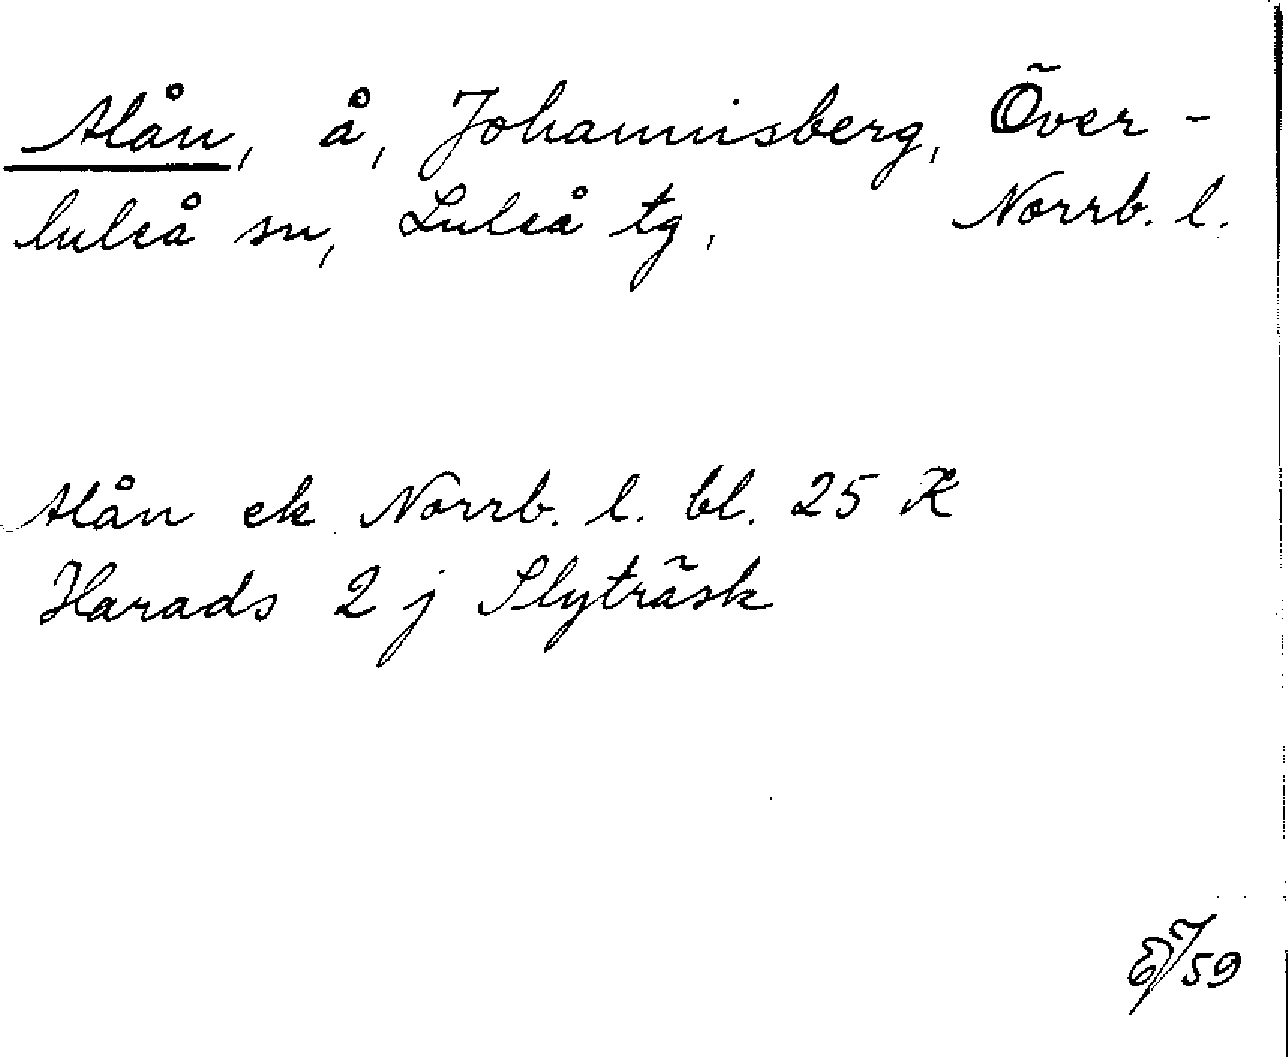 Alån, å, Johannisberg, Över-
luleå sn, Luleå tg, Norrb. l.
Alån ek Norrb. l. bl. 25 R
Harads 2 j Slyträsk
59